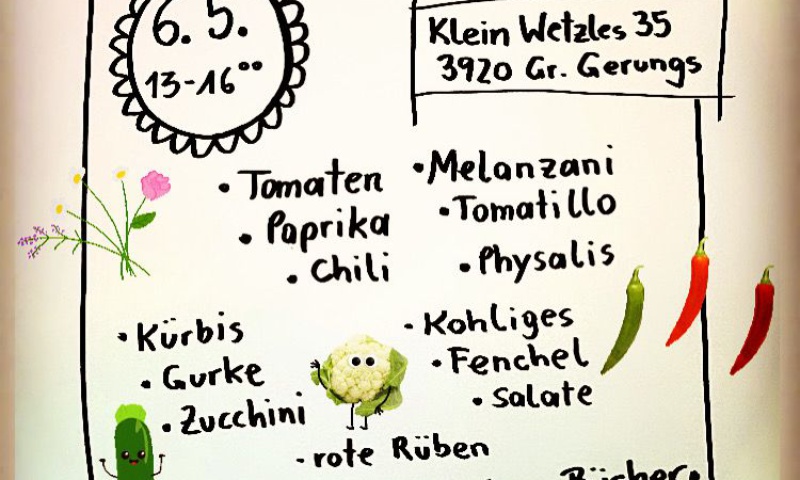 6. 5.
13-16⁰⁰
Klein Wetzles 35
3920 Gr. Gerungs
• Tomaten
• Paprika
• Chili
• Melanzani
• Tomatillo
• Physalis
• Kürbis
• Gurke
• Zucchini
• Kohliges
• Fenchel
• Salate
- rote Rüben
Bücher